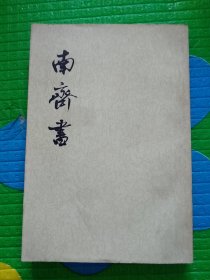 南齊書